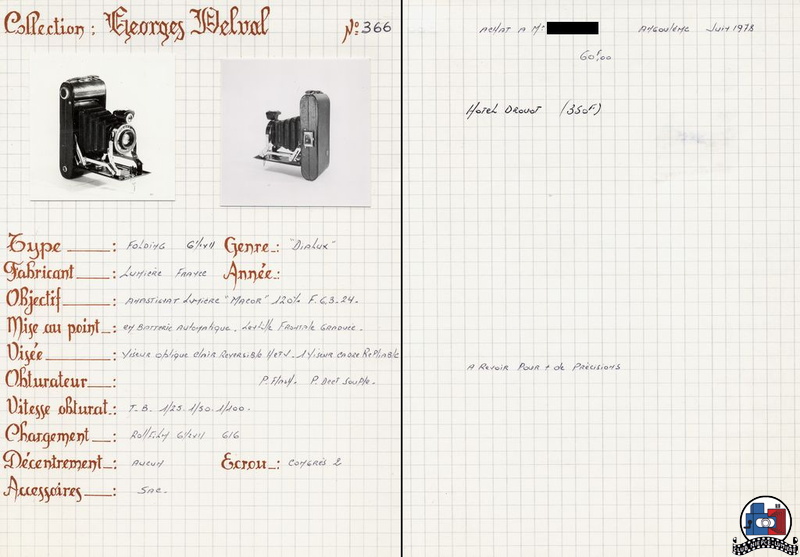 Collection : Georges Delval
N°: 366
Type : Folding 6½x11 Genre : "Dialux"
Fabricant : Lumière France Année :
Objectif : Anastigmat Lumière "Macor" 120% F. 6,3.24.
Mise au point : en Batterie Automatique. Lentille Frontale Graduée.
Visée : Viseur oblique clair Reversible H et V. 1 Viseur cadre Repliable
Obturateur : P. Flash. P. Dect Souple.
Vitesse obturat. : T. B. 1/25. 1/50. 1/100.
Chargement : Rollfilm 6½x11 616
Décentrement : Aucun Ecrou : Congrès 2
Accessoires : Sac.
Achat a Mr Angoulême Juin 1978
60f,00
Hotel Drouot (350F)
A Revoir Pour + de Précisions